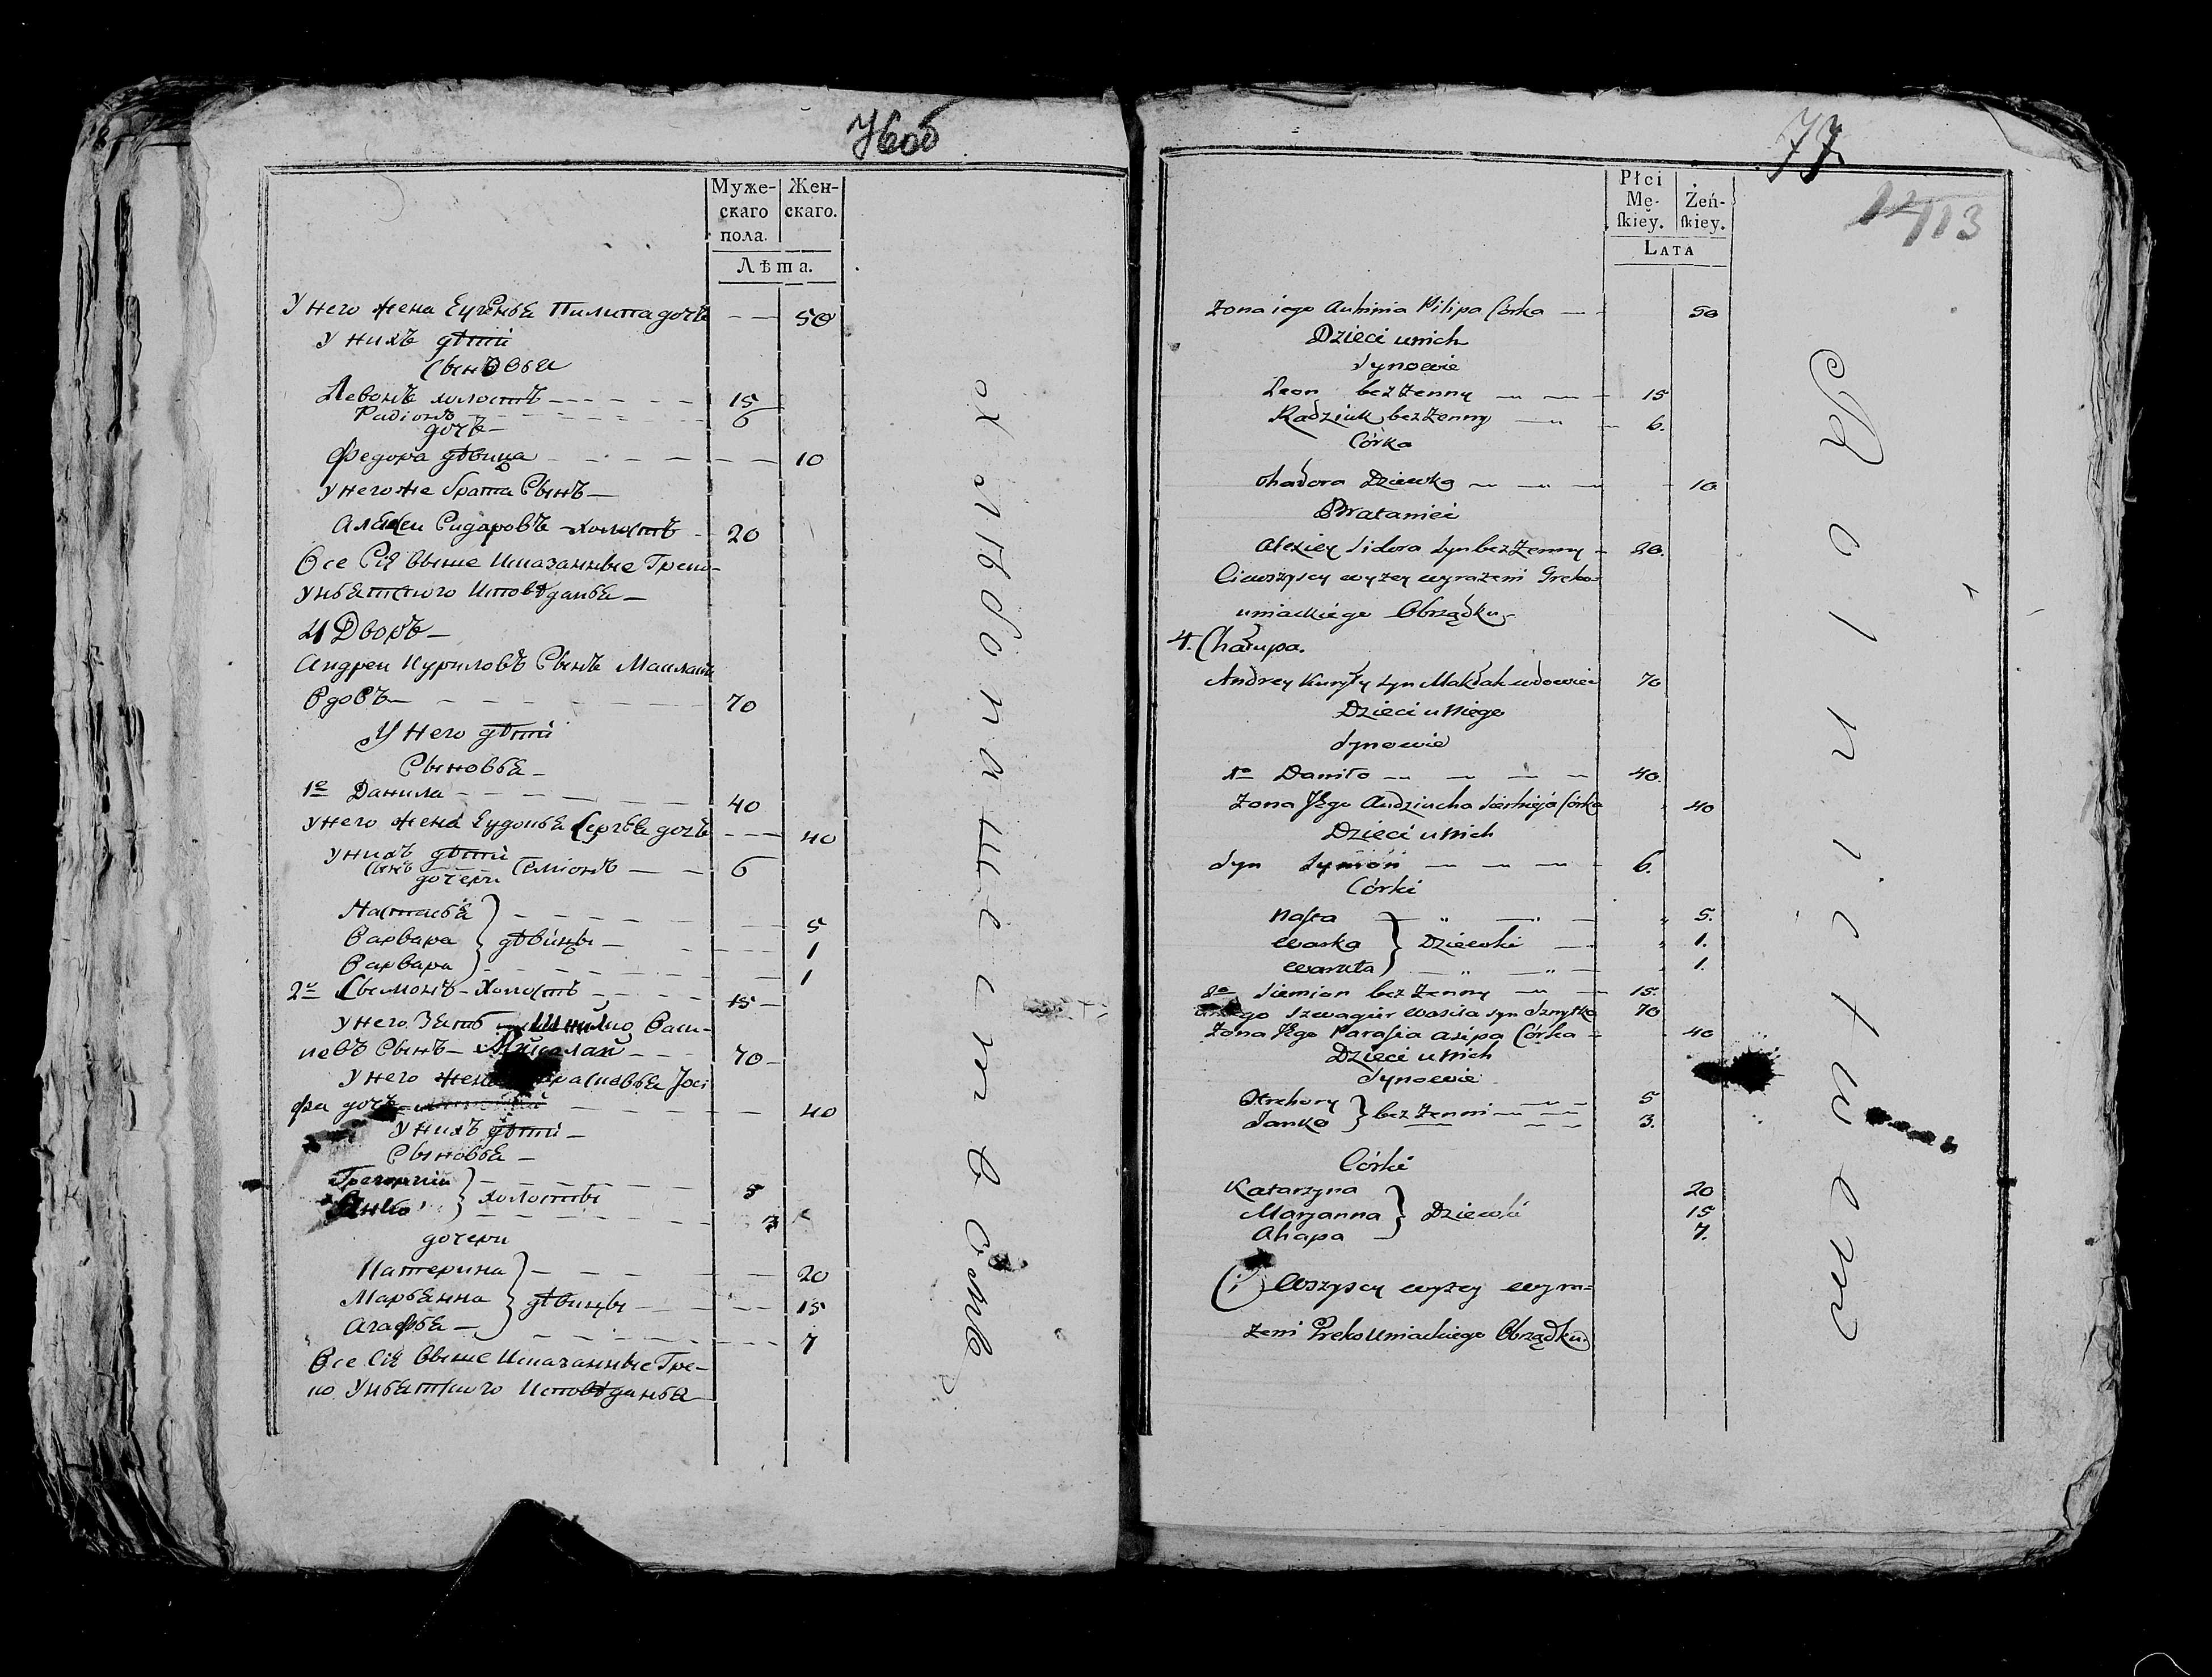 76об
Муже-
скаго
пола.
Жен-
скаго.
Лѣта.
У него жена Еугенья Пилипа дочь — — 50
У нихъ дѣти
Сыновья
Левонъ холостъ — — — 15
Радіонъ — — — 6
дочь —
Федора дѣвица — — — 10
У него же брата Сынъ —
Алексеи Сидаровъ холостъ - 20
Все Сіи выше Иказанные Греко-
Унѣятского Исповѣданья —
4 Дворъ —
Андреи Куриловъ Сынъ Маклакъ
Вдовъ — — — 70
У Него дѣти
Сыновья —
1е Данила — — — 40
У него жена Еудокья Сергѣя дочь — — 40
У нихъ дѣти
Сынъ Семіонъ — — 6
дочери
Настасья — — — 5
Варвара } дѣвицы — — — 1
Варвара — — — 1
2е Сымонъ — Холостъ — — — 15 —
У него Зять Васи-
левъ Сынъ — — — 70 —
У него жена Іоси
фа дочь — — — 40
У нихъ дѣти —
Сыновья —
Грегорiи — — — 5
Янко } холосты — — — 3
дочери
Катерина — — — 20
Марьянна } дѣвицы — — — 15
Агафья — — — — 7
Все Сіи Выше Иказанные Гре-
ко Унѣятского Исповѣданья
хлѣбопашествомъ
77
1413
Płci
Mę-
ſkiey.
Żeń-
ſkiey.
LATA
Zona iego Auhinia Pilipa Córka — 50
Dzieci unich
Synowie
Leon bez Zenny — — 15
Radziuk bez Zenny — — 6.
Córka
Chadora Dziewka — — — 10
Brataniei
Alexiey Sidora Syn bez Zenny — 20.
Ciwszyscy wyzey wyrazeni Greko-
uniackiego Obrządku
4. Chałupa.
Andrey Kuryły Syn Makłak wdowiec 70
Dzieci u Niego
Synowie
1o Daniło — — — — 40.
Zona Jego Audziucha Sierhieja Córka 40
Dzieci u Nich
Syn Symon — — — 6.
Córki
Nasta — " — " — 5.
Waska } Dziewki — 1.
Waruta — " — " — 1.
2o Siemion bez Zenny — — 15.
Szwagier Wasila Syn Szmytko 70
Zona Jego Parasia Asipa Córka - 40
Dzieci u Nich
Synowie
Hrehory — — 5
Janko } bez Zenni — — 3.
Córki
Katarzyna 20
Maryanna } Dziewki 15
Ahapa 7.
(i) Wszyscy wyzey wyra=
zeni Greko Uniackiego Obrządku
Rolnictwem